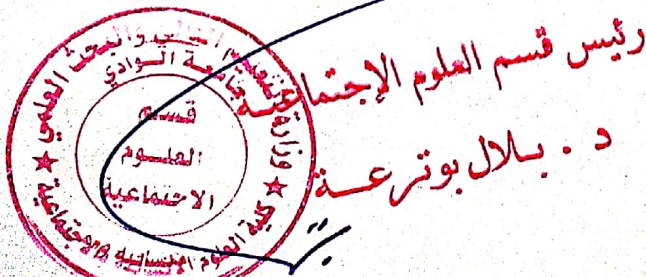 رئيس قسم العلوم الإجتماعية
د. بلال بوترعة
وزارة التعليم العالي والبحث العلمي
جامعة الوادي
قسم
العلوم
الاجتماعية
كلية العلوم الإنسانية والاجتماعية